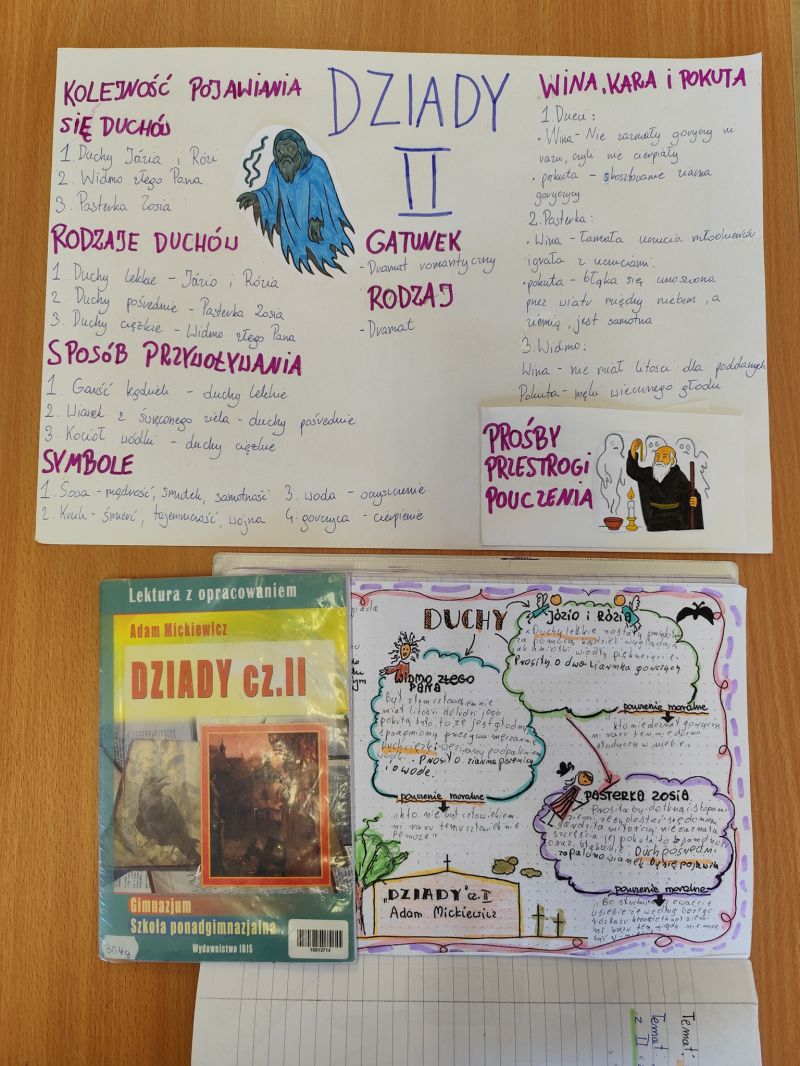 KOLEJNOŚĆ POJAWIANIA
SIĘ DUCHÓW
1. Duchy Józia i Rózi
2. Widmo złego Pana
3. Pasterka Zosia
RODZAJE DUCHÓW
1. Duchy lekkie - Józio i Rózia
2. Duchy pośrednie - Pasterka Zosia
3. Duchy ciężkie - Widmo złego Pana
SPOSÓB PRZYWOŁYWANIA
1. Garść kądzieli - duchy lekkie
2. Wianek z święconego ziela - duchy pośrednie
3. Kocioł wódki - duchy ciężkie
SYMBOLE
1. Sowa - mądrość, smutek, samotność 3. woda - oczyszczenie
2. Kruk - śmierć, tajemniczość, wojna 4. gorczyca - cierpienie
DZIADY
II
GATUNEK
- Dramat romantyczny
RODZAJ
- Dramat
WINA, KARA i POKUTA
1. Dzieci:
• Wina - Nie zaznały goryczy ni
razu, czyli nie cierpiały
• pokuta - skosztowanie ziarna
gorczycy
2. Pasterka:
• Wina - łamała uczucia młodzieńców
igrała z uczuciami.
• pokuta - błąka się unoszona
przez wiatr między niebem, a
ziemią, jest samotna
3. Widmo:
Wina - nie miał litości dla poddanych
Pokuta - męki wiecznego głodu
PROŚBY
PRZESTROGI
POUCZENIA
Lektura z opracowaniem
Adam Mickiewicz
DZIADY cz.II
Gimnazjum
Szkoła ponadgimnazjalna
Wydawnictwo IBIS
364g
10013714
DUCHY
WIDMO ZŁEGO
PANA
Był złym człowiekiem nie
miał litości do ludzi jego
pokutą było to że jest głodny
spragniony przeżywa męczarnie
Duch ciężki wezwany
wódki. Prosił o ziarna pszenicy
i o wodę.
pouczenie moralne
kto nie był człowiekiem
ni razu temu człowiek nie
pomoże"
JÓZIO i RÓZIA
Duchy lekkie zostały
za pomocą kądzieli wyglądają
jak aniołki
Prosiły o dwa ziarnka gorczycy
pouczenie moralne
kto nie doznał goryczy
ni razu ten nie dozna
słodyczy w niebie"
PASTERKA ZOSIA
Prosiła by dotknąć stopami
ziemi, żeby dostać się do nieba
gardziła miłością nie zaznała
szczęścia jej pokuta to samotność
oraz błąkanie. Duch pośredni
zapalono wianek by się pojawiła
pouczenie moralne
"Bo słuchajcie i zważcie
u siebie że według bożego
rozkazu
ni razu ten nigdy nie może
być w niebie"
"DZIADY" cz. II
Adam Mickiewicz
Temat:
Temat:
z II